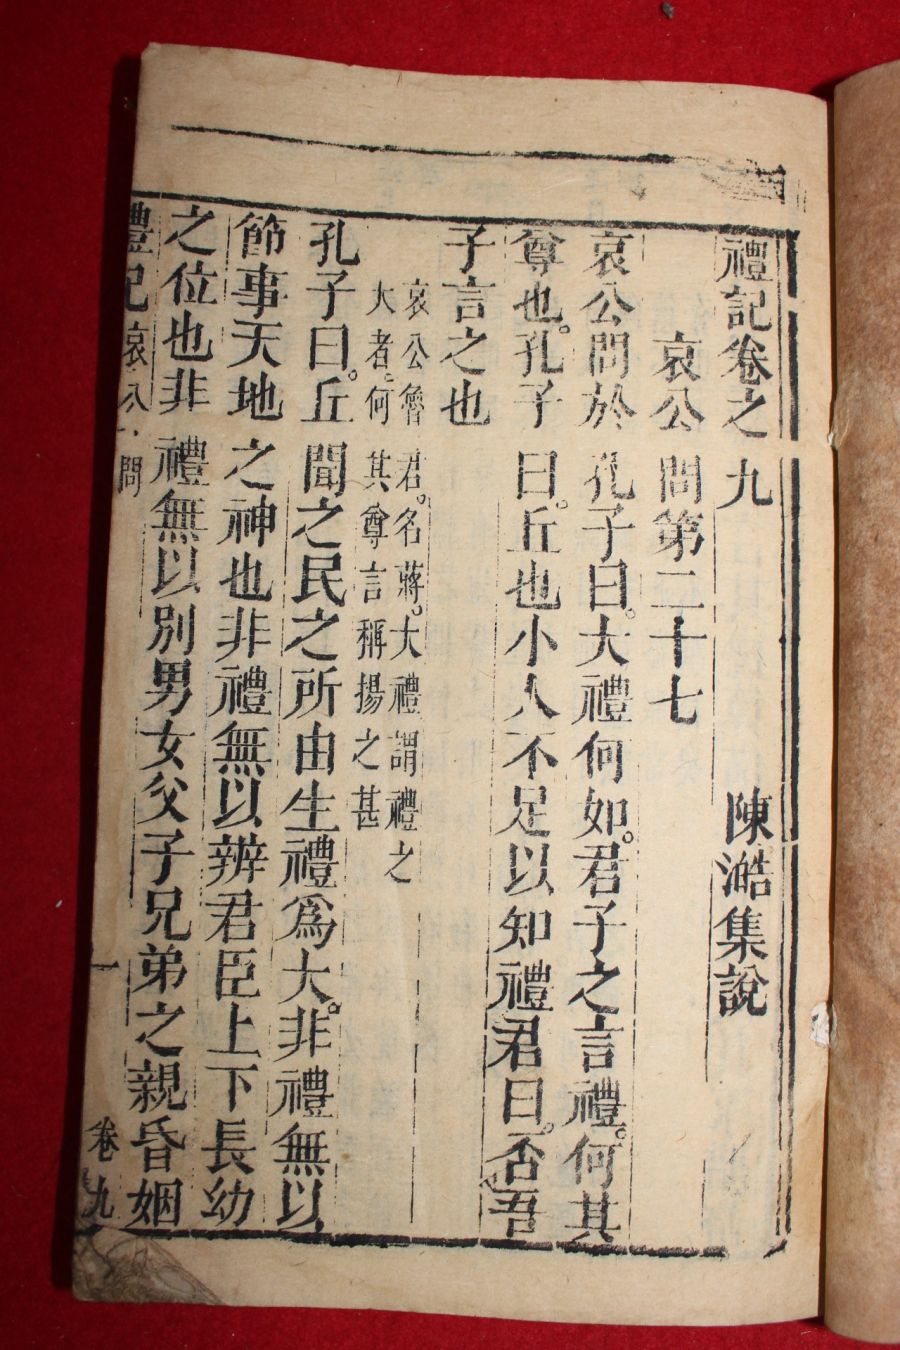 禮記卷之九 陳澔集說
哀公問第二十七
哀公問於孔子曰。大禮何如。君子之言禮。何其
尊也。孔子曰。丘也小人不足以知禮君曰。否吾
子言之也
哀公魯君。名蔣。大禮謂禮之
大者。何其尊言稱揚之甚
孔子曰。丘聞之民之所由生禮爲大。非禮無以
節事天地之神也非禮無以辨君臣上下長幼
之位也非禮無以別男女父子兄弟之親昏姻
禮記 哀公問 一 卷九